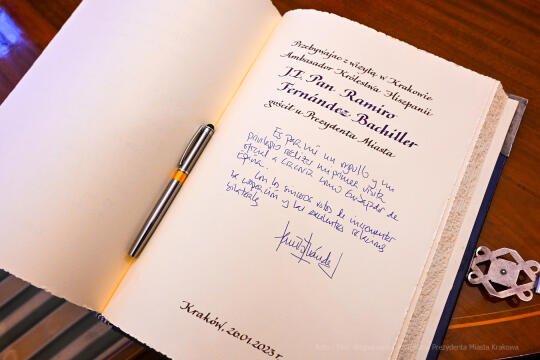 Przebywając z wizytą w Krakowie
Ambasador Królestwa Hiszpanii
J.E. Pan Ramiro
Fernández Bachiller
gościł u Prezydenta Miasta
Es para mí un orgullo y un
privilegio realizar mi primer visita
oficial a Cracovia como Embajador de
España.
Con los sinceros votos de incrementar
la cooperación y las excelentes relaciones
bilaterales
Kraków, 20.01.2023 r.
Prezydenta Miasta Krakowa